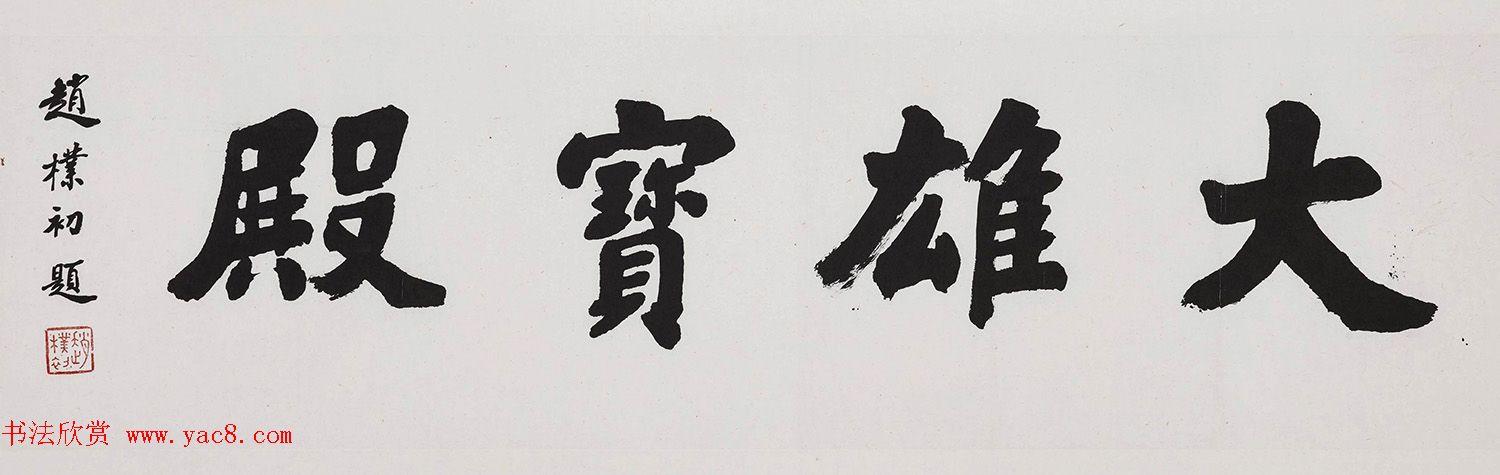 大雄寶殿
趙樸初題
趙樸初
书法欣赏 www.yac8.com